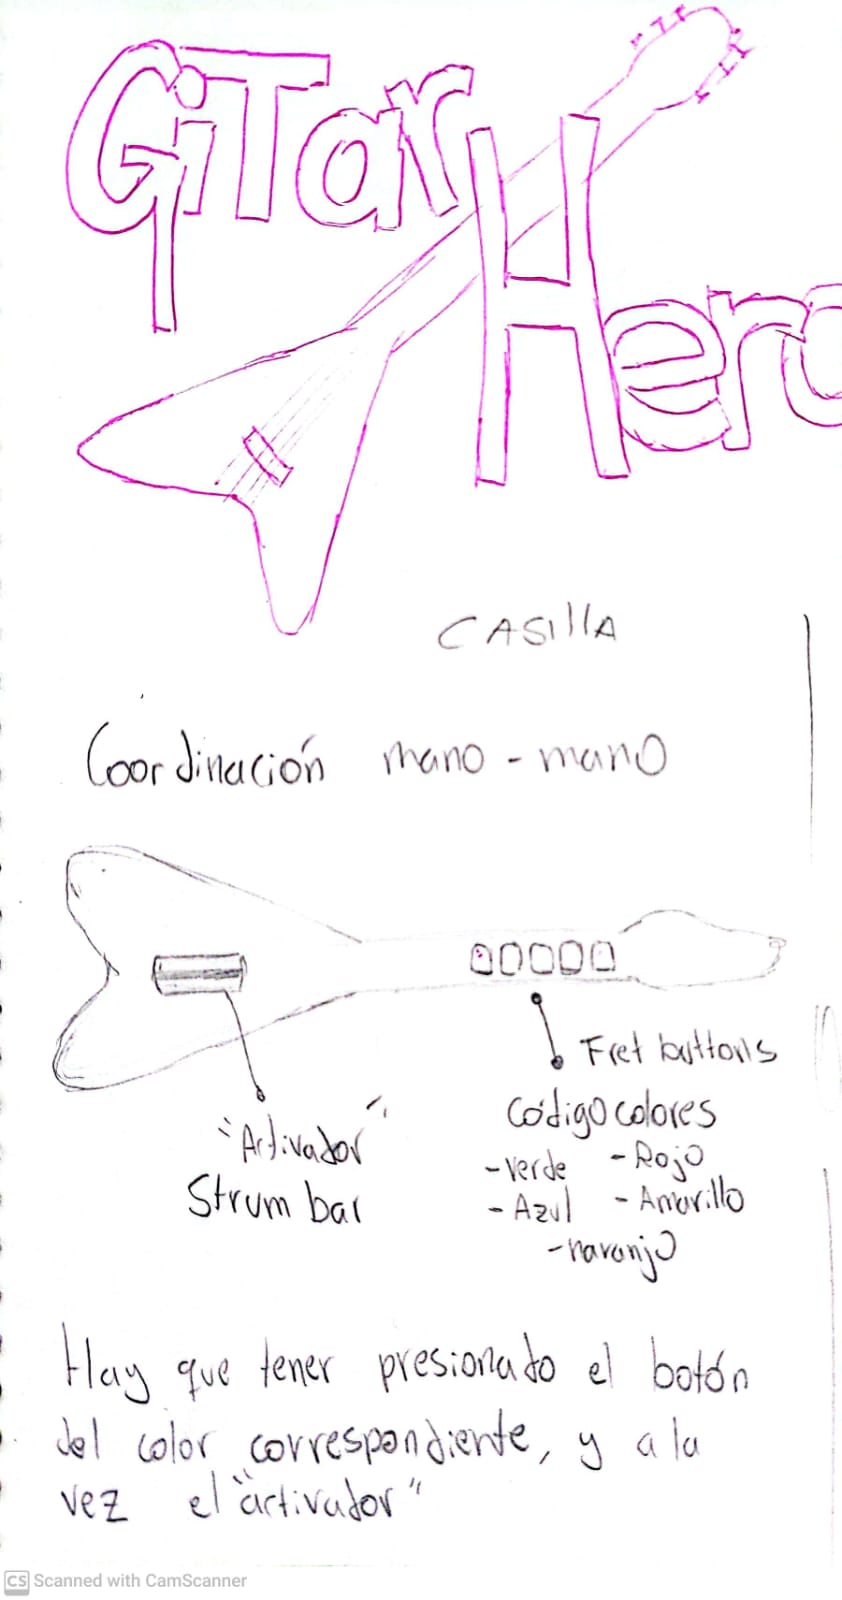 GiTar
Hero
CASIllA
Coordinación mano - mano
Fret buttons
Código colores
"Activador"
Strum bar
- verde - Rojo
- Azul - Amarillo
- naranjo
Hay que tener presionado el botón
del color correspondiente, y a la
vez el "activador"
CS Scanned with CamScanner